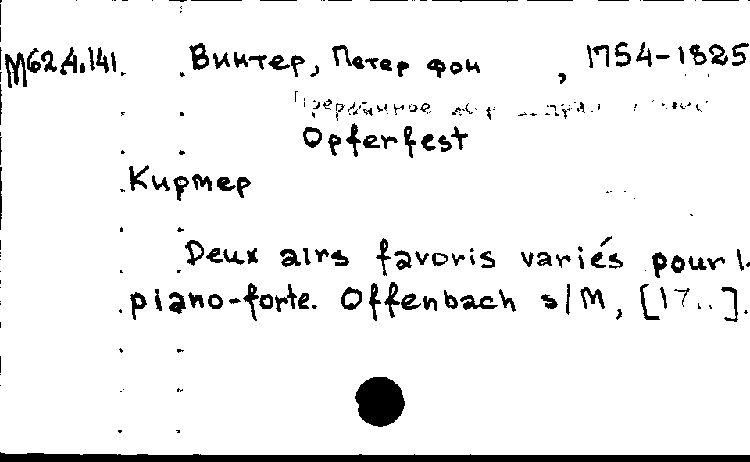 M62.4.141. Винтер, Петер фон , 1754-1825
Прерванное
Opferfest
Кирмер
Deux airs favoris variés pour l
piano-forte. Offenbach s/M, [17..].